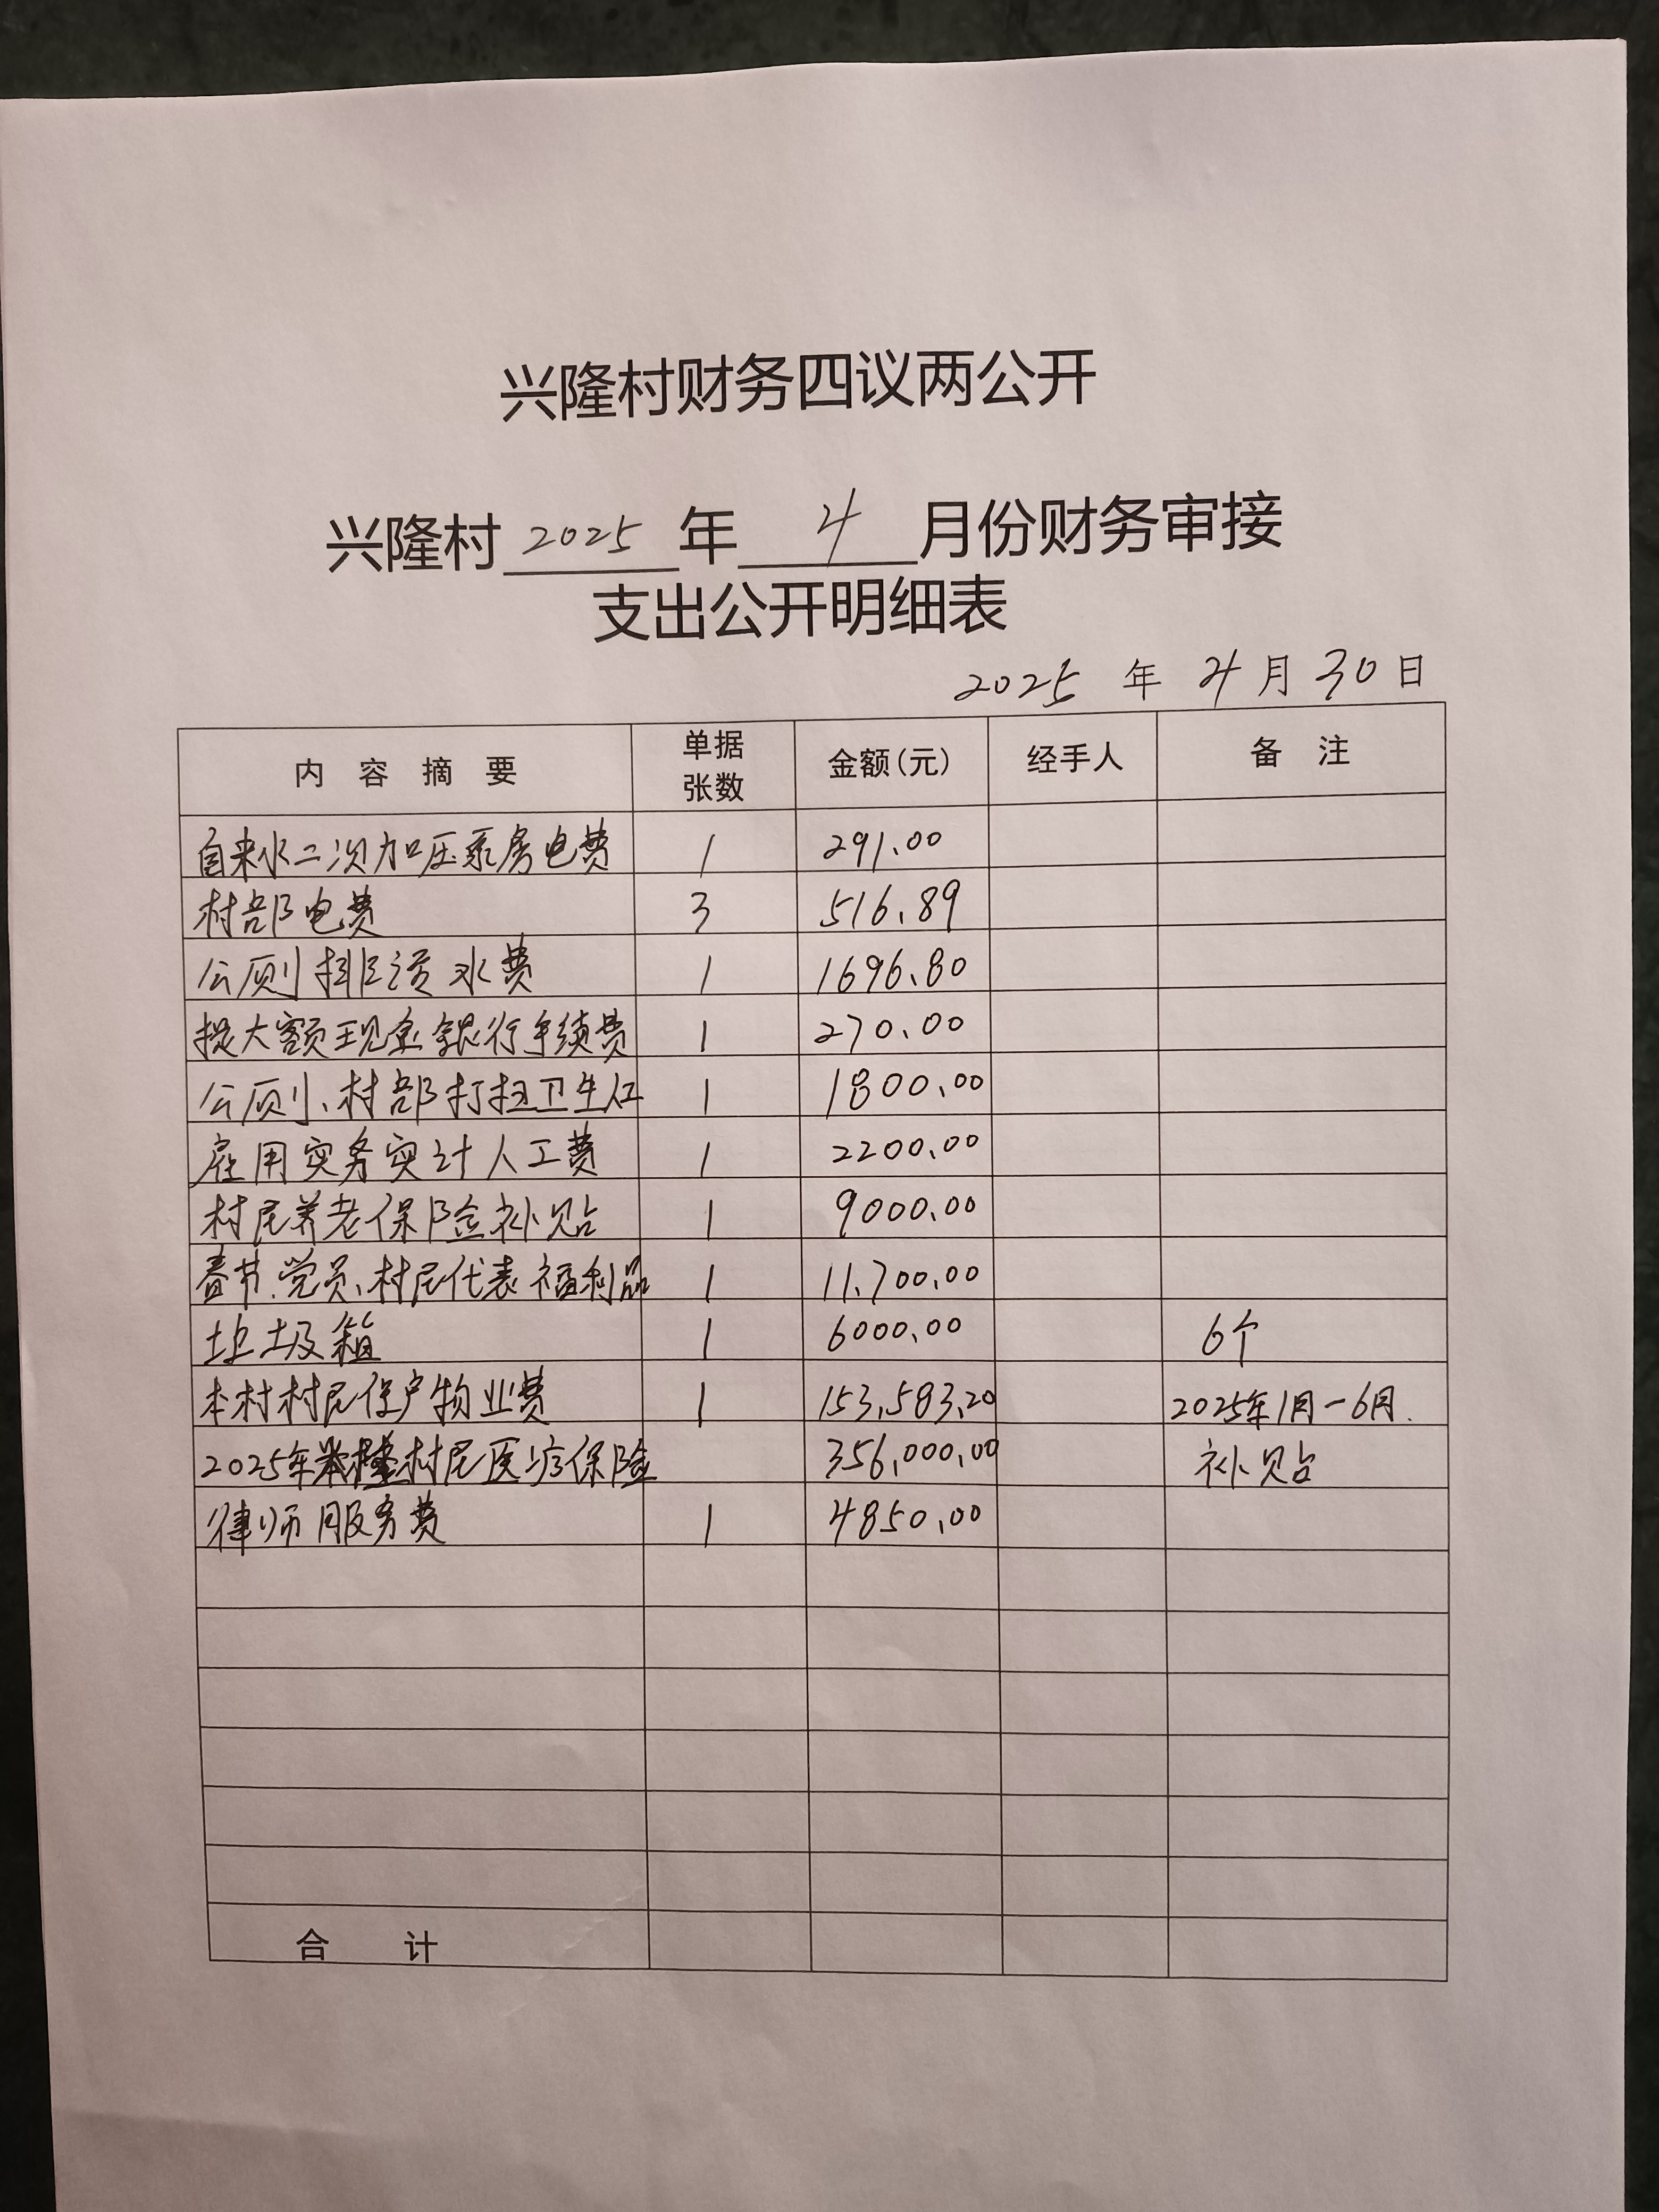 兴隆村财务四议两公开
兴隆村 2025 年 4 月份财务审接
支出公开明细表
2025 年 4月 30日
内 容 摘 要 单据张数 金额(元) 经手人 备 注
自来水二次加压泵房电费 1 291.00
村部电费 3 516.89
公厕排污水费 1 1696.80
提大额现金银行手续费 1 270.00
公厕、村部打扫卫生 1 1800.00
雇用 人工费 1 2200.00
村民养老保险补贴 1 9000.00
春节.党员、村民代表福利品 1 11.700.00
垃圾箱 1 6000.00 6个
本村村民住户物业费 1 153,583.20 2025年1月-6月.
2025年村民医疗保险 356,000.00 补贴
律师服务费 1 4850.00
合 计